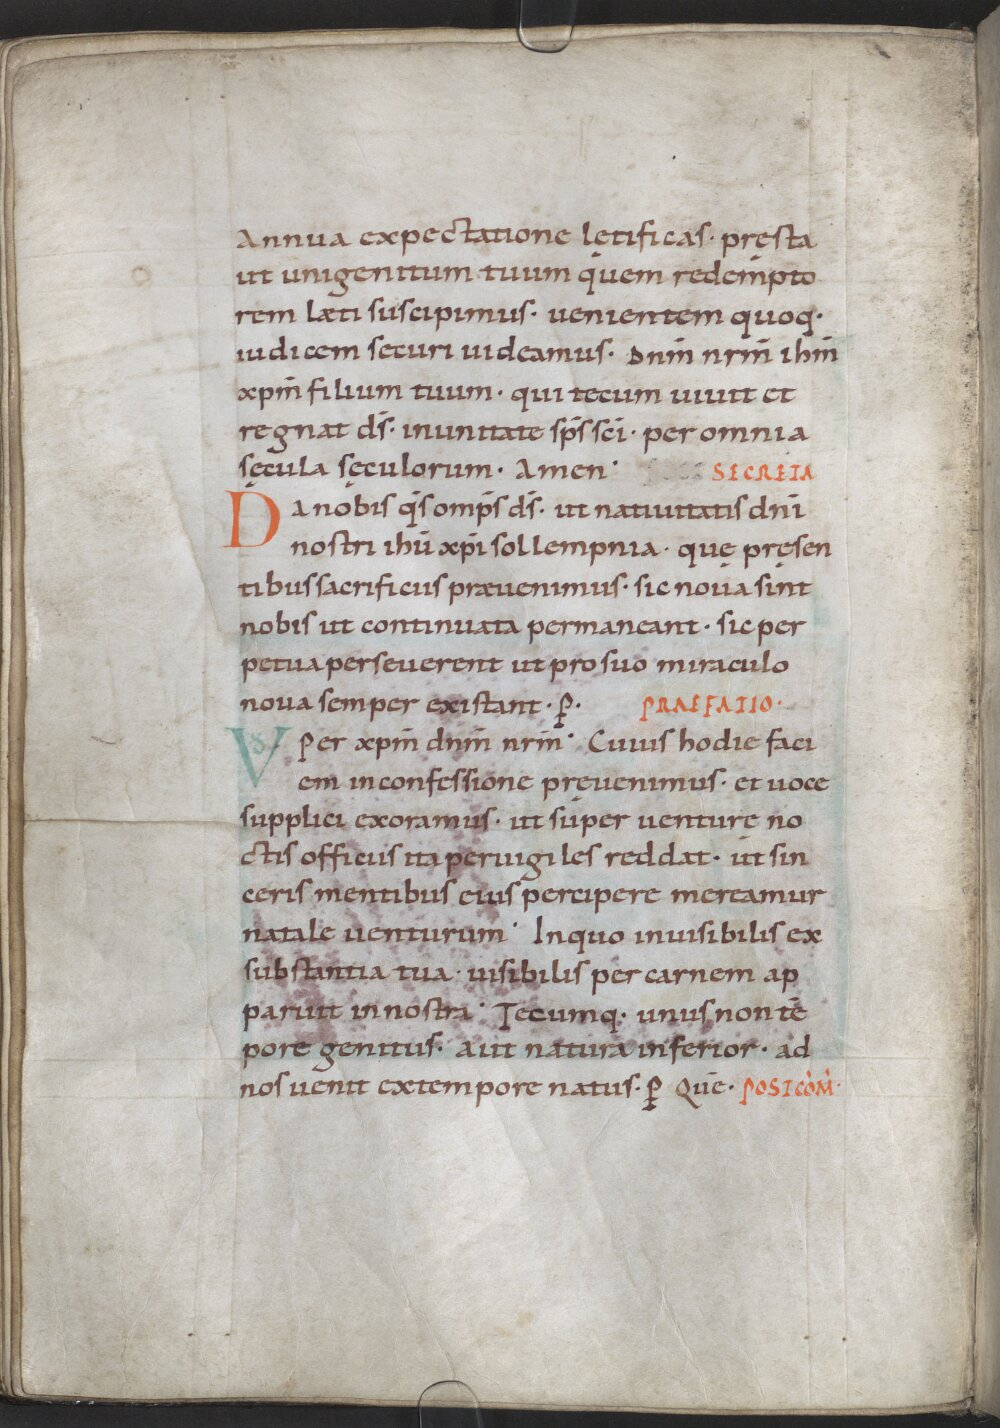 Annua expectatione lętificas· pręsta
ut unigenitum tuum quem redempto
rem læti suscipimus· uenientem quoq·
iudicem securi uideamus· Dnm̄ nrm̄ ihm̄
xpm̄ filium tuum· qui tecum uiuit et
regnat dſ̄· inunitate sp̄s sc̄i· per omnia
sęcula sęculorum· Amen· SECRETA
Da nobis q̄s omp̄s dſ̄· ut natiuitatis dn̄i
nostri ihū xp̄i sollempnia· quę pręsen
tibus sacrificiis præuenimus· sic noua sint
nobis ut continuata permaneant· sic per
petua perseuerent ut pro suo miraculo
noua semper existant· P̱· PRAEFATIO·
V Per xpm̄ dnm̄ nrm̄· Cuius hodie faci
em inconfessione pręuenimus· et uoce
supplici exoramus· ut super venturę no
ctis officiis ita peruigiles reddat· ut sin
ceris mentibus eius percipere mereamur
natale uenturum· Inquo inuisibilis ex
substantia tua· uisibilis per carnem ap
paruit innostra· Tecumq· unus non tē
pore genitus· aut natura inferior· ad
nos uenit extempore natus· P̱ Quē· POSTCOM̄·